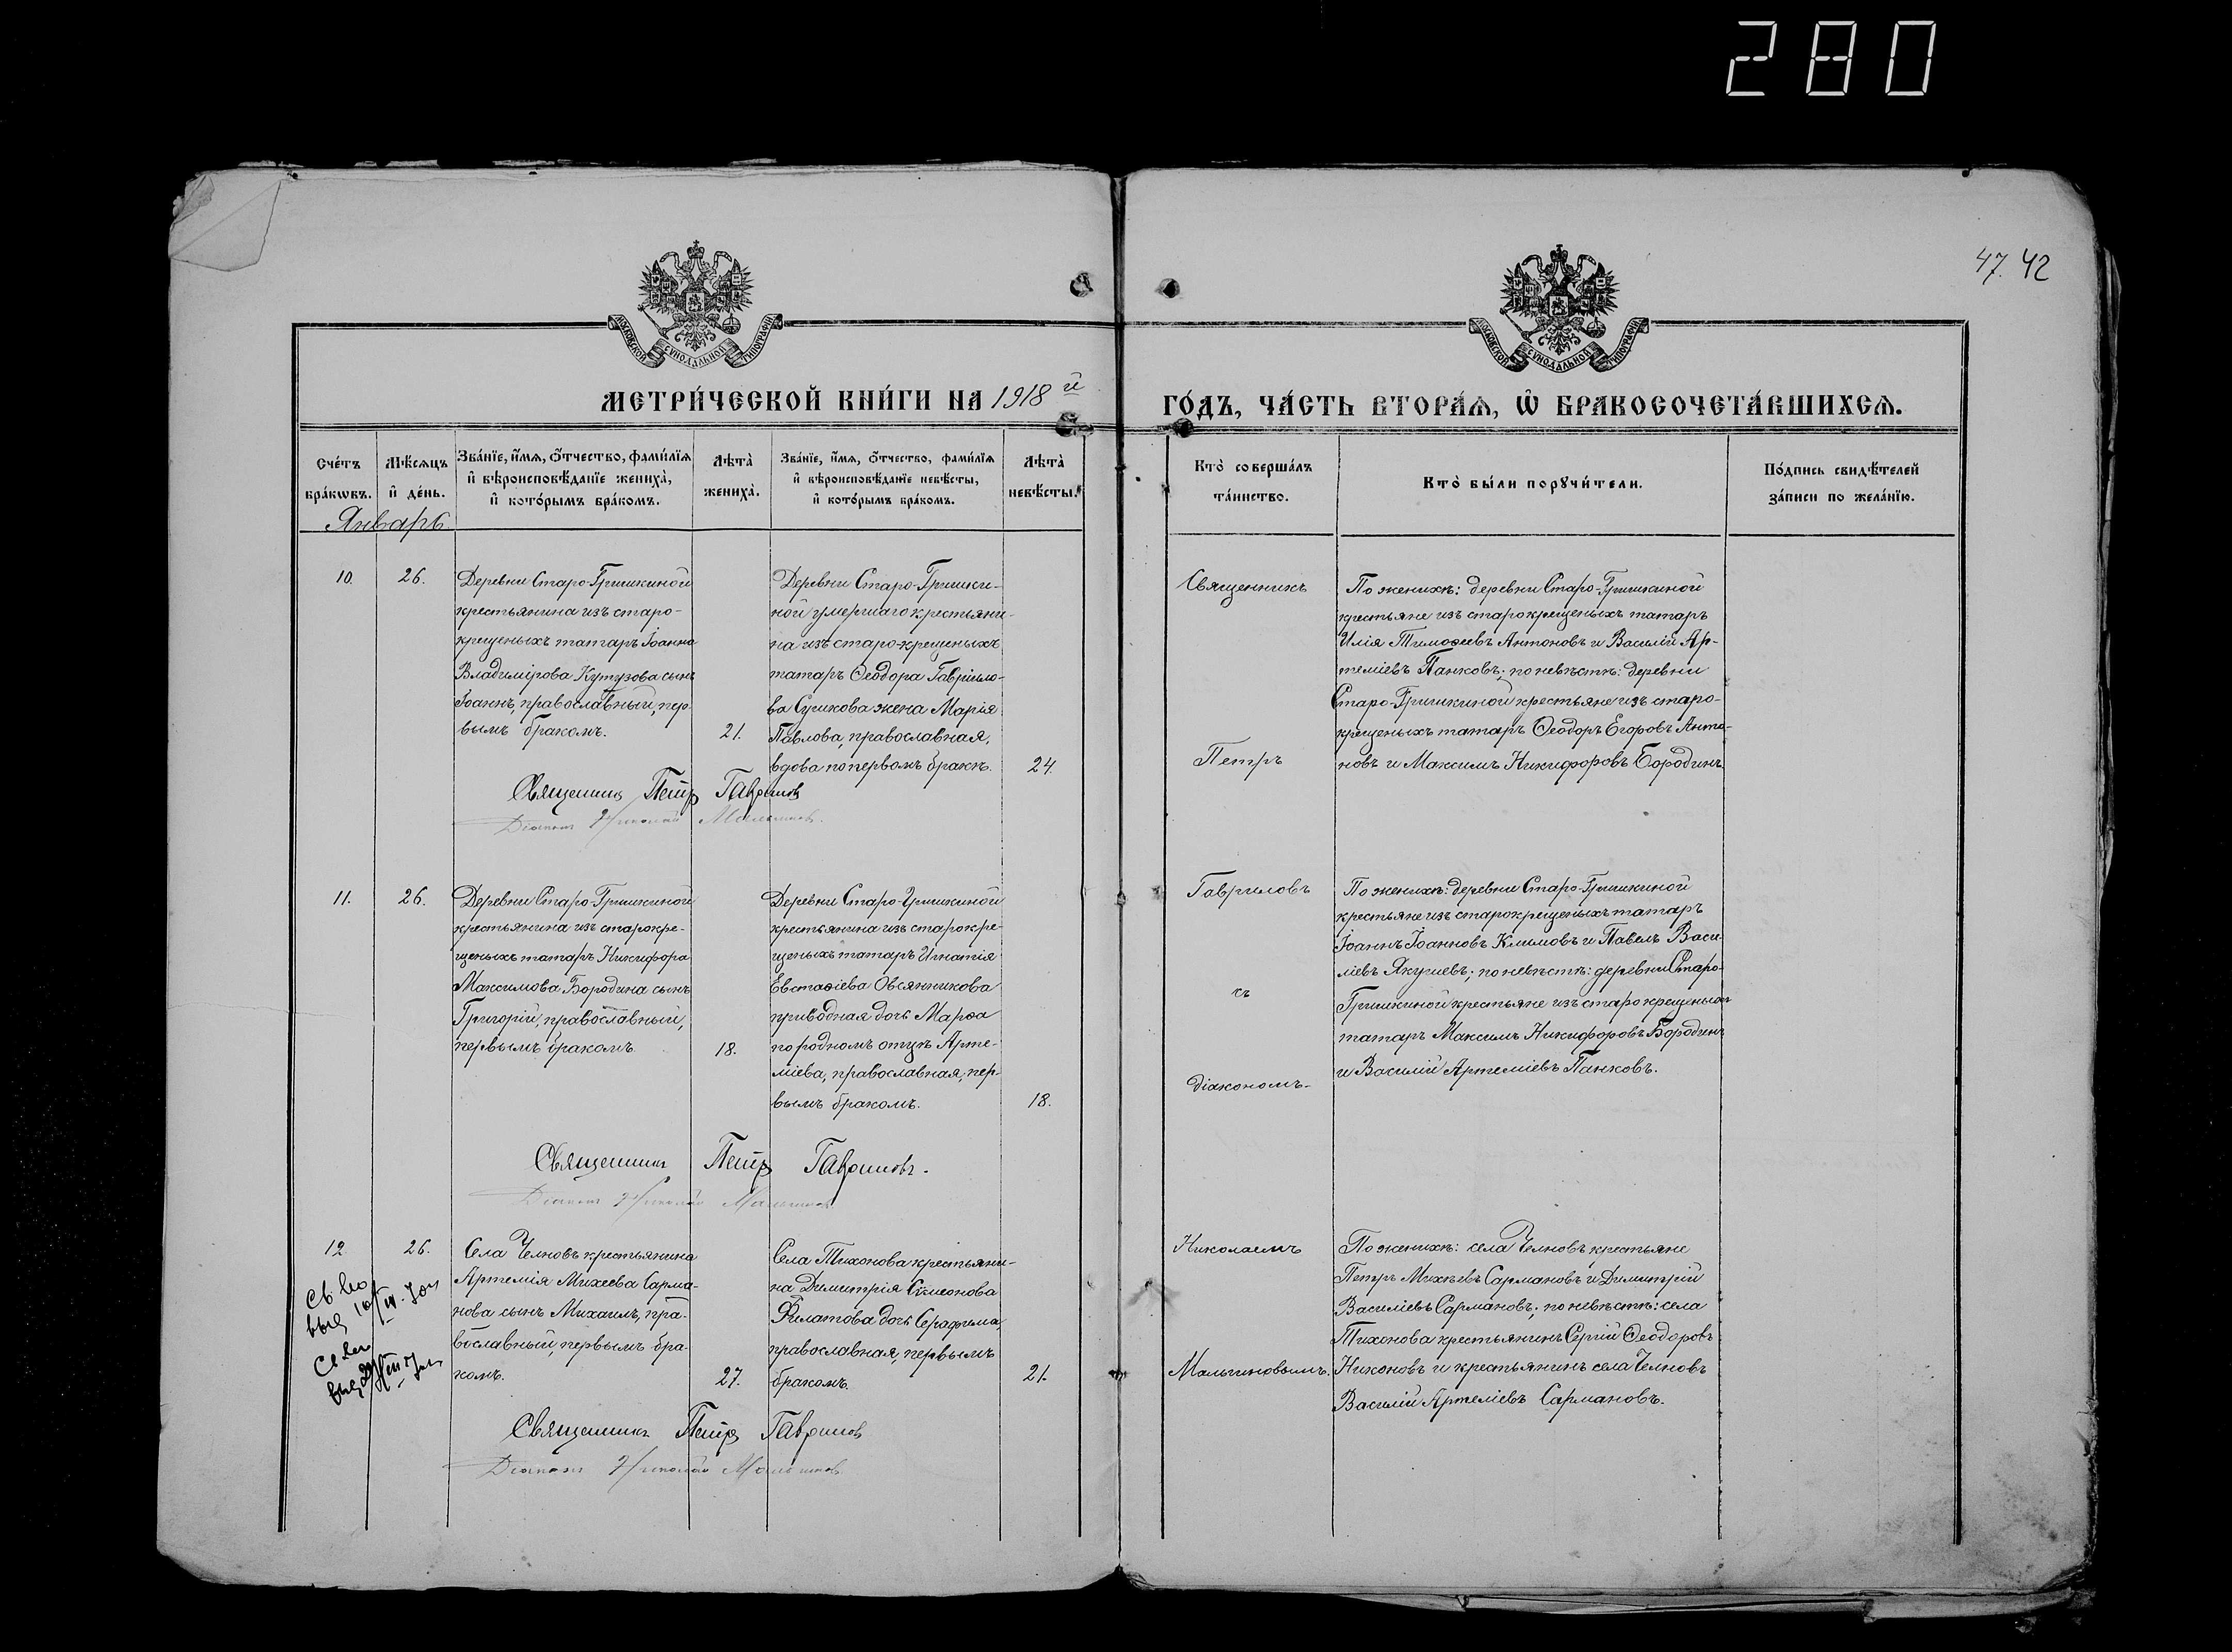 280
47. 42
МОСКОВСКОЙ СѴНОДАЛЬНОЙ ТИПОГРАФІИ
МОСКОВСКОЙ СѴНОДАЛЬНОЙ ТИПОГРАФІИ
МЕТРИ́ЧЕСКОЙ КНИ́ГИ НА 1918 й
ГО́ДЪ, ЧА́СТЬ ВТОРА́Ѧ, Ѡ҆ БРАКОСОЧЕТА́ВШИХСѦ.
Сче́тъ бра́кωвъ.
Мѣ́сѧцъ и҆ де́нь.
Зва́нїе, и҆́мѧ, ѻ҆́тчество, фами́лїѧ
и҆ вѣроисповѣ́данїе жениха̀,
и҆ кото́рымъ бра́комъ.
Лѣта̀ жениха̀.
Зва́нїе, и҆́мѧ, ѻ҆́тчество, фами́лїѧ
и҆ вѣроисповѣ́данїе невѣ́сты,
и҆ кото́рымъ бра́комъ.
Лѣта̀ невѣ́сты.
Кто̀ соверша́лъ
та́инство.
Кто̀ бы́ли порꙋчи́тели.
По́дпись свидѣ́телей
за́писи по жела́нїю.
Январь
10.
26.
Деревни Старо-Гришкиной
крестьянина изъ старо-
крещеныхъ татаръ Іоанна
Владимірова Кутузова сынъ
Іоаннъ, православный, пер-
вымъ бракомъ.
21.
Деревни Старо-Гришки-
ной умершаго крестьяни-
на изъ старо-крещеныхъ
татаръ Ѳеодора Гавріило-
ва Сушкова жена Марія
Павлова, православная,
вдова по первомъ бракѣ.
24.
Священникъ Петръ Гавриловъ
Діаконъ Николай Мальгиновъ.
Священникъ
Петръ
По женихѣ: деревни Старо-Гришкиной
крестьяне изъ старокрещеныхъ татаръ
Илія Тимоѳеевъ Антоновъ и Василій Ар-
теміевъ Панковъ; по невѣстѣ: деревни
Старо-Гришкиной крестьяне изъ старо-
крещеныхъ татаръ Ѳеодоръ Егоровъ Анто-
новъ и Максимъ Никифоровъ Бородинъ.
11.
26.
Деревни Старо-Гришкиной
крестьянина изъ старокре-
щеныхъ татаръ Никифора
Максимова Бородина сынъ
Григорій, православный,
первымъ бракомъ.
18.
Деревни Старо-Гришкиной
крестьянина изъ старокре-
щеныхъ татаръ Игнатія
Евстаѳіева Овсянникова
приводная дочь Марѳа
по родномъ отцѣ Арте-
міева, православная, пер-
вымъ бракомъ.
18.
Священникъ Петръ Гавриловъ.
Діаконъ Николай Мальгиновъ
Гавриловъ
съ
діакономъ-
По женихѣ: деревни Старо-Гришкиной
крестьяне изъ старокрещеныхъ татаръ
Іоаннъ Іоанновъ Климовъ и Павелъ Васи-
ліевъ Якушевъ; по невѣстѣ: деревни Старо-
Гришкиной крестьяне изъ старокрещеныхъ
татаръ Максимъ Никифоровъ Бородинъ
и Василій Артеміевъ Панковъ.
12
26.
Села Челновъ крестьянина
Артемія Михеева Сарма-
нова сынъ Михаилъ, пра-
вославный, первымъ бра-
комъ.
27.
Села Тихонова крестьяни-
на Димитрія Симеонова
Филатова дочь Серафима,
православная, первымъ
бракомъ.
21.
Священникъ Петръ Гавриловъ
Діаконъ Николай Мальгиновъ
Николаемъ
Мальгиновымъ.
По женихѣ: села Челновъ крестьяне
Петръ Михѣевъ Сармановъ и Димитрій
Василіевъ Сармановъ; по невѣстѣ: села
Тихонова крестьянинъ Сергій Ѳеодоровъ
Никоновъ и крестьянинъ села Челновъ
Василій Артеміевъ Сармановъ.